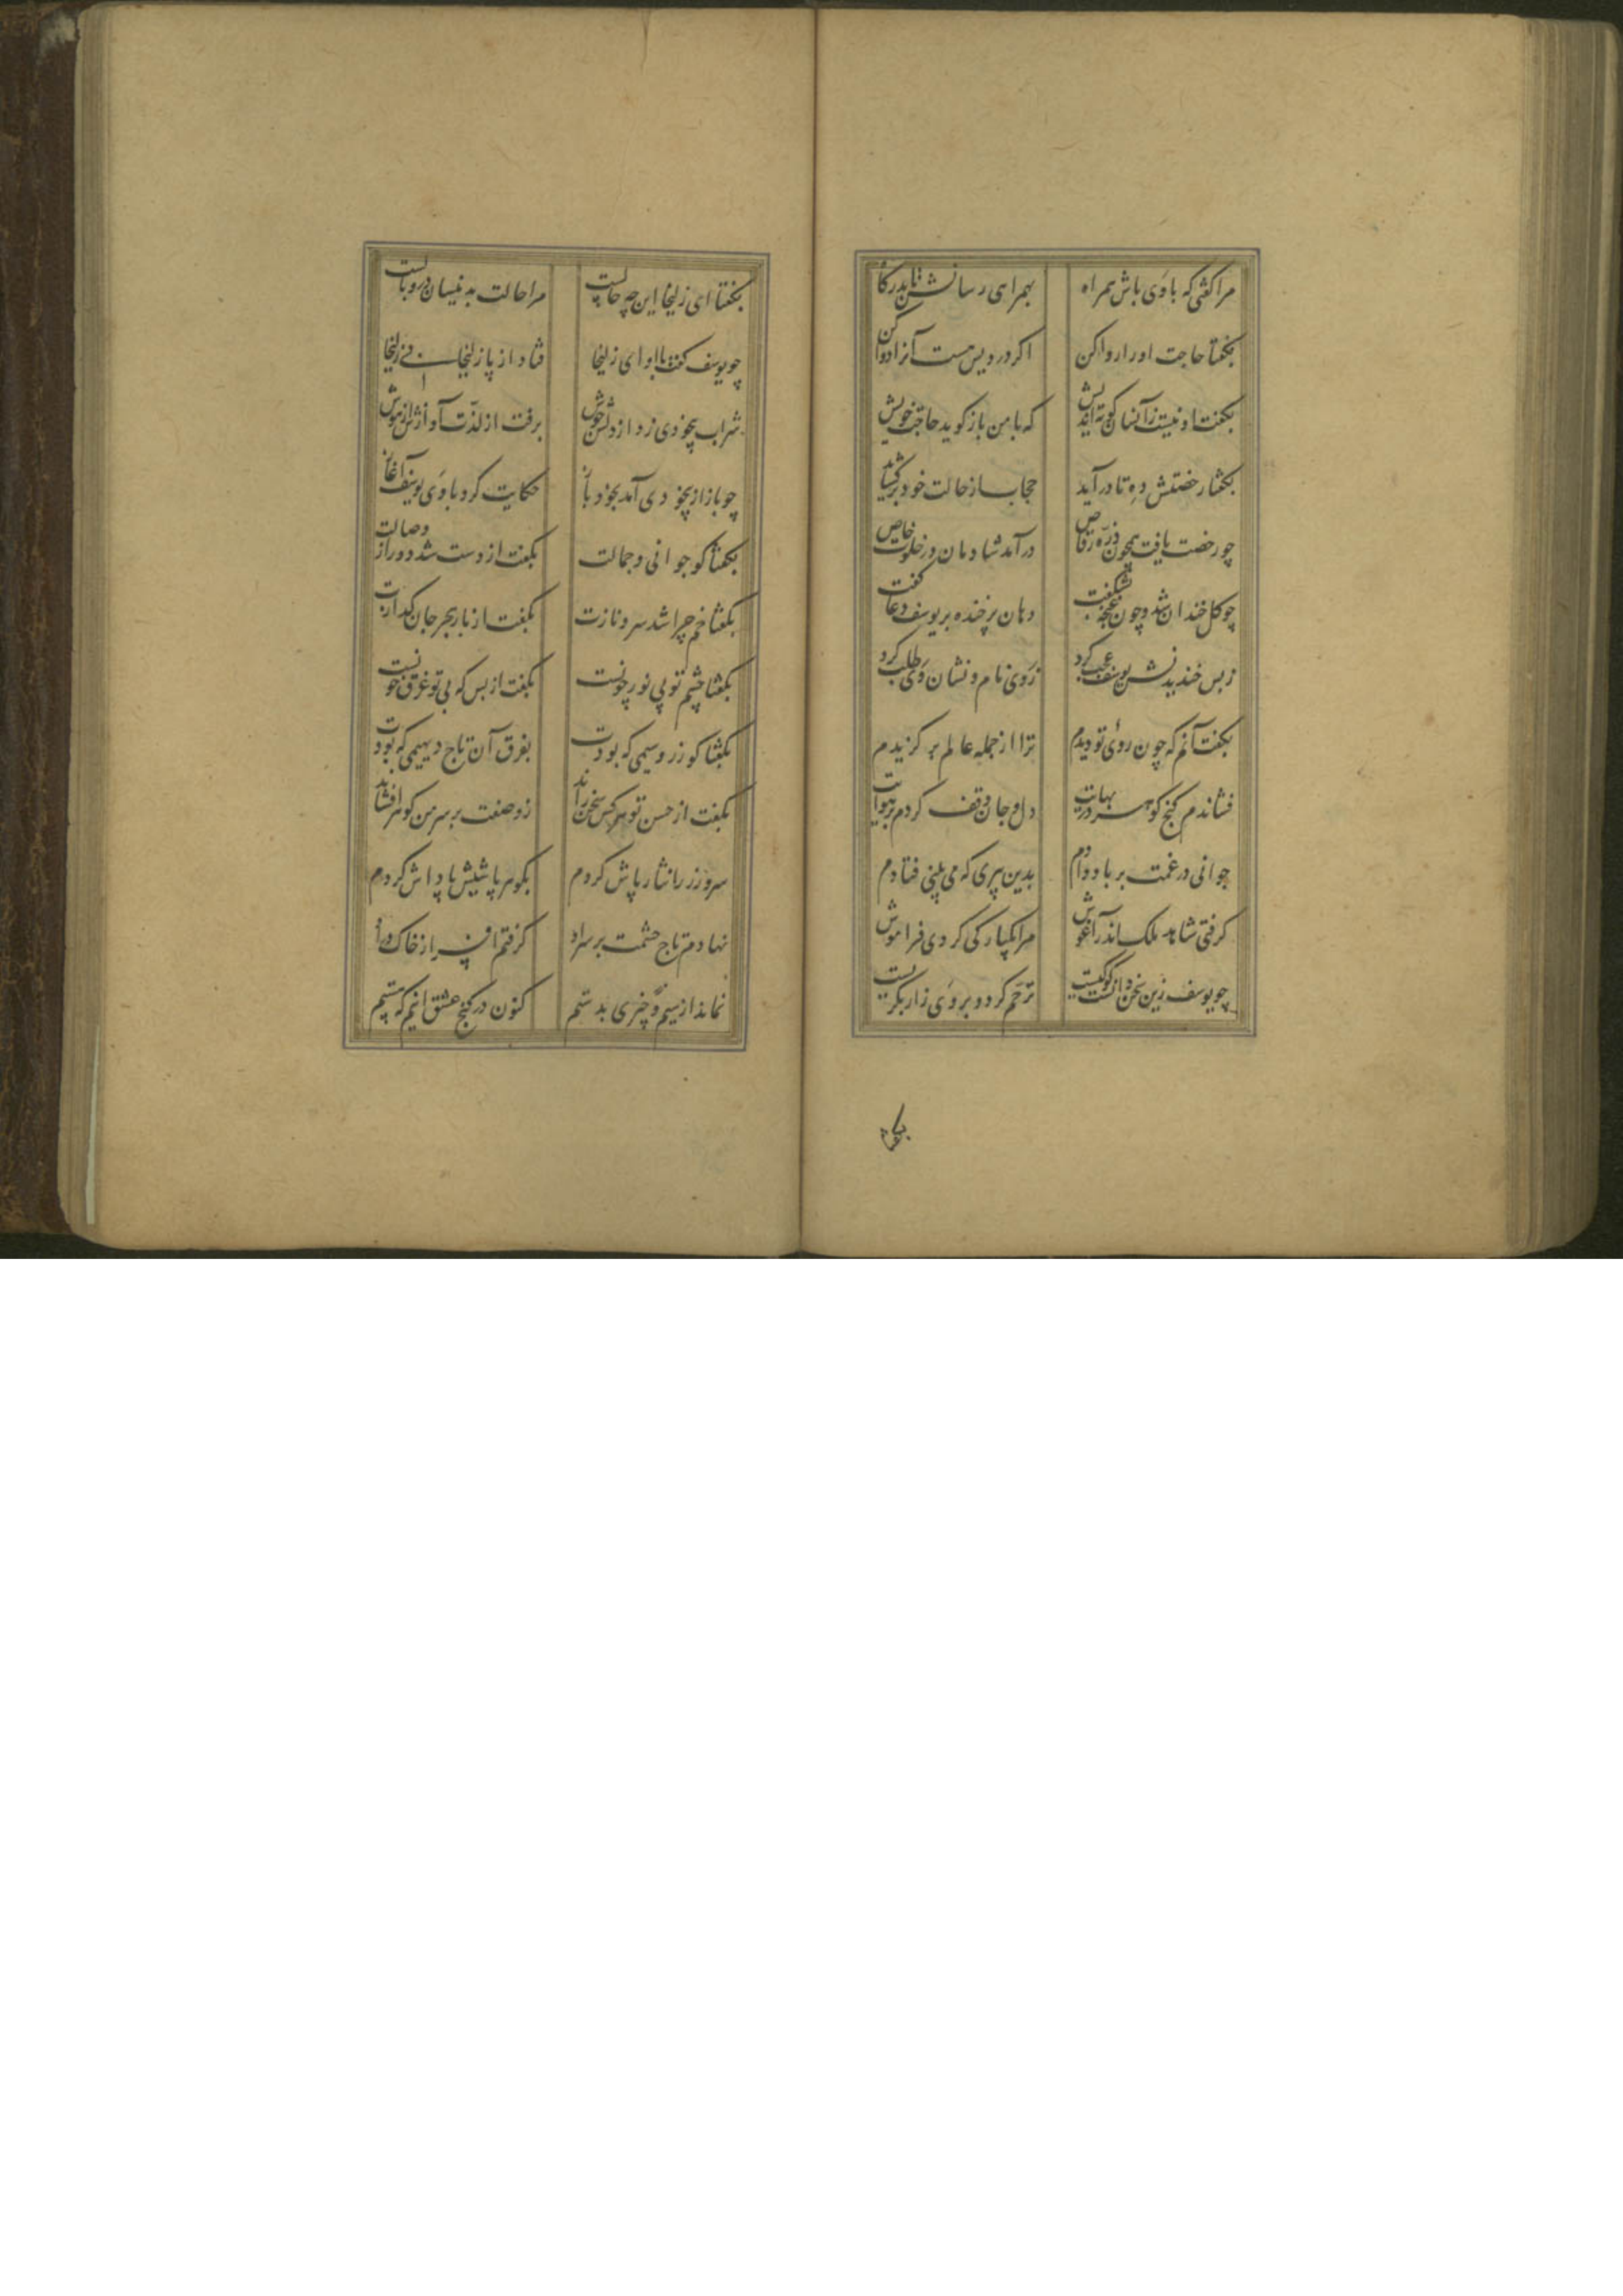 مرا گفتی که با وی باش همراه بهمراهی رسانش تا بدرگاه
بگفتا حاجت او را روا کن اگر دردیش هست آنرا دوا کن
بگفت او نیست زآنسان کوته اندیش که با من باز گوید حاجت خویش
بگفتا رخصتش ده تا درآید حجاب از حالت خود برگشاید
چو رخصت یافت همچون ذره رقاص درآمد شادمان در خلوت خاص
چو گل خندان شد و چون غنچه بشکفت دهان پرخنده بر یوسف دعا گفت
ز بس خندیدنش یوسف عجب کرد ز وی نام و نشان وی طلب کرد
بگفت آنم که چون روی تو دیدم ترا از جمله عالم برگزیدم
فشاندم گنج و گوهر در بهایت دل و جان وقف کردم بر هوایت
جوانی در غمت بر باد دادم بدین پیری که می بینی فتادم
گرفتی شاهد ملک اندر آغوش مرا یکبارگی کردی فراموش
چو یوسف زین سخن دانست کو کیست ترحم کرد و بر وی زار بگریست
بگفتا
بگفتا ای زلیخا این چه حالست مرا حالت بدینسان در وبالست
چو یوسف گفت با او ای زلیخا فتاد از پا زلیخا بی زلیخا
شراب بیخودی زد از دلش جوش برفت از لذت آوازش از هوش
چو باز از بیخودی آمد بخود باز حکایت کرد با وی یوسف آغاز
بگفتا کو جوانی و جمالت بگفت از دست شد دور از وصالت
بگفتا خم چرا شد سرو نازت بگفت از بار هجر جان گدازت
بگفتا چشم تو بی نور چونست بگفت از بس که بی تو غرق خونست
بگفتا کو زر و سیمی که بودت بفرق آن تاج و دیهیمی که بودت
بگفت از حسن تو هر کس سخن راند ز وصفت بر سر من گوهر افشاند
سر و زر را نثار پاش کردم بگوهر پاشیش پاداش کردم
نهادم تاج حشمت بر سر او گرفتم افسر از خاک در او
نماند از سیم و چیزی بدستم کنون در کنج عشق اینم که هستم